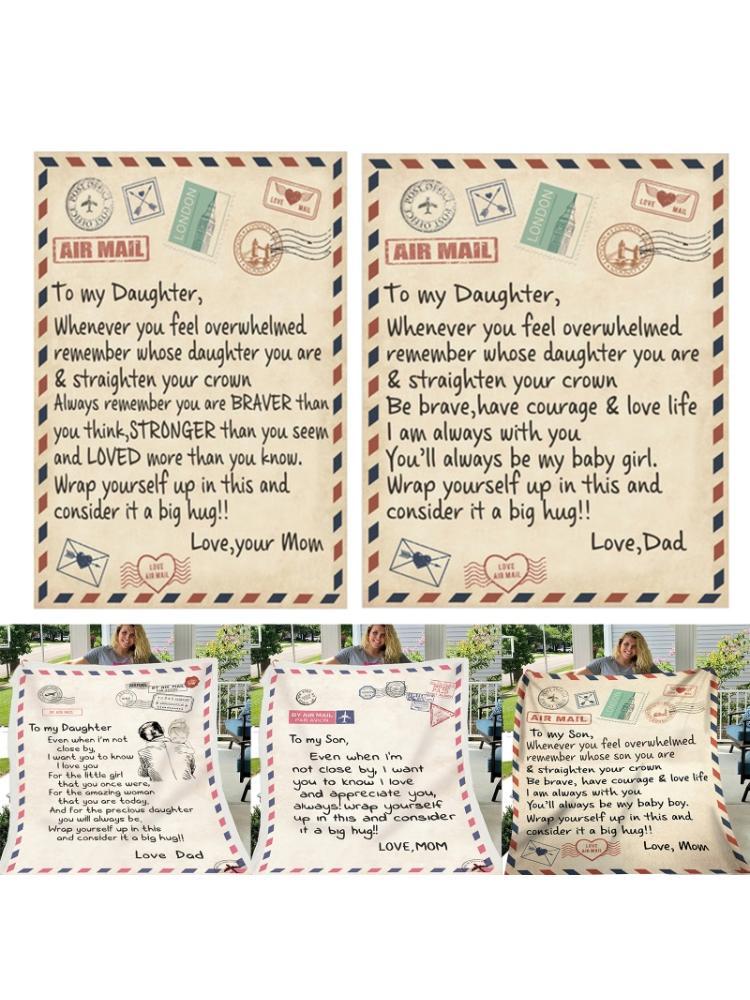 POST OFFICE
LONDON
LOVE MAIL
AIR MAIL
To my Daughter,
Whenever you feel overwhelmed
remember whose daughter you are
& straighten your crown
Always remember you are BRAVER than
you think,STRONGER than you seem
and LOVED more than you know.
Wrap yourself up in this and
consider it a big hug!!
Love,your Mom
LOVE
AIR MAIL
POST OFFICE
LONDON
LOVE MAIL
AIR MAIL
To my Daughter,
Whenever you feel overwhelmed
remember whose daughter you are
& straighten your crown
Be brave,have courage & love life
I am always with you
You'll always be my baby girl.
Wrap yourself up in this and
consider it a big hug!!
Love,Dad
LOVE
AIR MAIL
BY AIR MAIL
To my Daughter
Even when i'm not
close by,
I want you to know
I love you
For the little girl
that you once were,
For the amazing woman
that you are today,
And for the precious daughter
you will always be,
Wrap yourself up in this
and consider it a big hug!!
Love Dad
BY AIR MAIL
PAR AVION
To my Son,
Even when i'm
not close by, I want
you to know I love
and appreciate you,
always! wrap yourself
up in this and consider
it a big hug!!
LOVE,MOM
LONDON
AIR MAIL
To my Son,
Whenever you feel overwhelmed
remember whose son you are
& straighten your crown
Be brave, have courage & love life
I am always with you
You'll always be my baby boy.
Wrap yourself up in this and
consider it a big hug!!
Love, Mom
LOVE
AIR MAIL